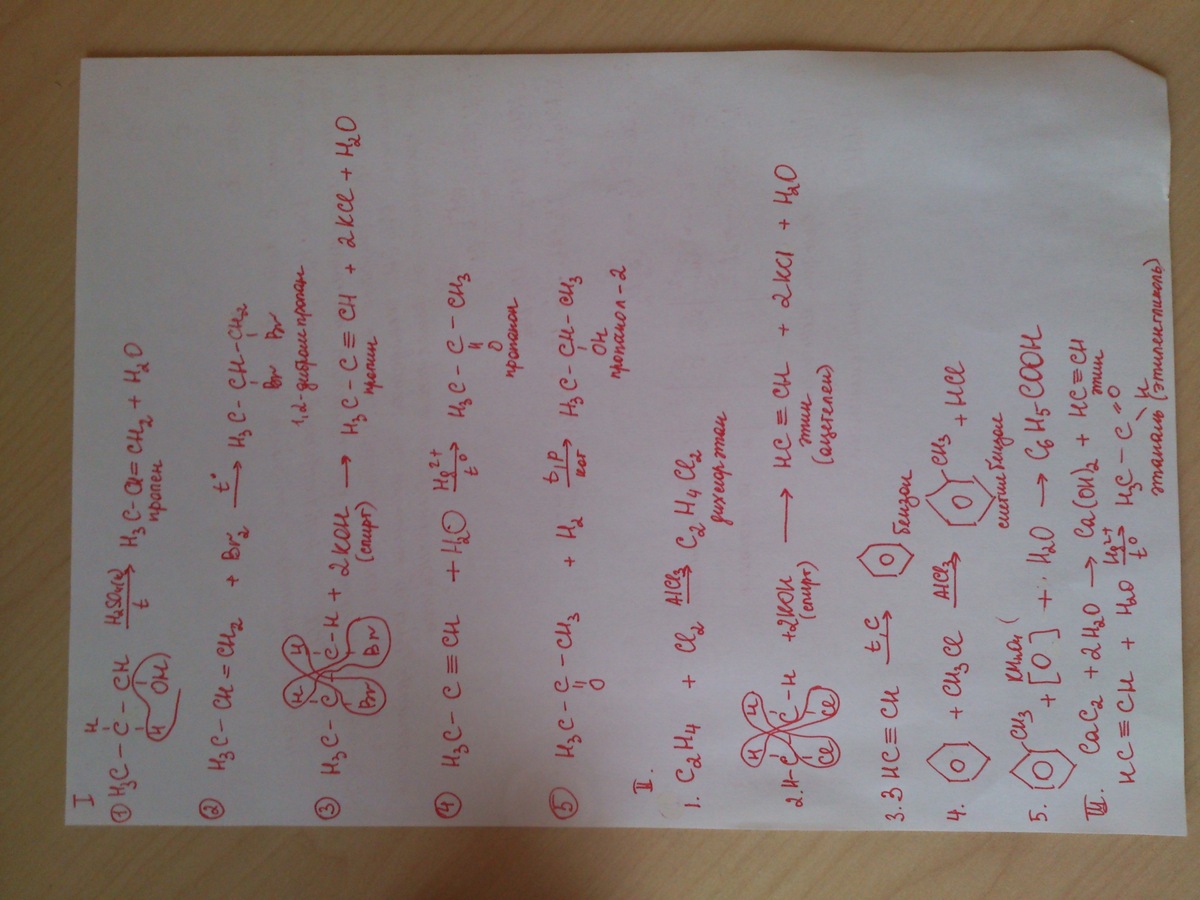 I
① H₃C – C – CH —H₂SO₄(к), t→ H₃C – CH = CH₂ + H₂O
H
H OH
пропен
② H₃C – CH = CH₂ + Br₂ —t°→ H₃C – CH – CH₂
Br Br
1,2-дибромпропан
③ H₃C – C – C – H + 2KOH → H₃C – C ≡ CH + 2KCl + H₂O
H H
Br Br
(спирт)
пропин
④ H₃C – C ≡ CH + H₂O —Hg²⁺, t°→ H₃C – C – CH₃
O
пропанон
⑤ H₃C – C – CH₃ + H₂ —t, P, кат→ H₃C – CH – CH₃
O OH
пропанол – 2
II.
1. C₂H₄ + Cl₂ —AlCl₃→ C₂H₄Cl₂
дихлорэтан
2. H – C – C – H + 2KOH → HC ≡ CH + 2KCl + H₂O
H H
Cl Cl
(спирт)
этин
(ацетелен)
3. 3 HC ≡ CH —t, C→
бензол
4. + CH₃Cl —AlCl₃→ CH₃ + HCl
метилбензол
5. CH₃ + [O] + H₂O → C₆H₅COOH
KMnO₄
III. CaC₂ + 2H₂O → Ca(OH)₂ + HC ≡ CH
этин
HC ≡ CH + H₂O —Hg²⁺, t°→ H₃C – C = O
H
этаналь (этиленгликоль)